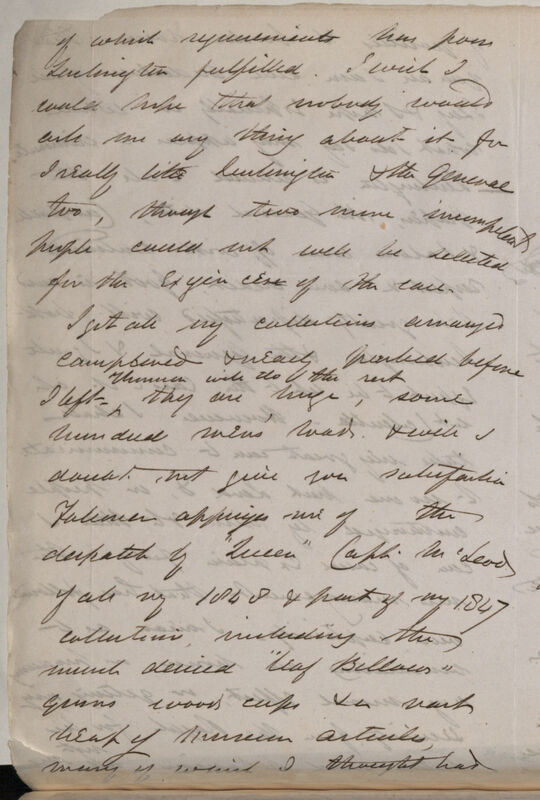 of which requirements has poor
Luchington fulfilled. I wish I
could hope that nobody would
ask me any thing about it for
I really like Luchington & the General
too, though two more incompetent
people could not well be selected
for the Exigencies of the case.
I got all my collections arranged
compared & nearly packed before
I left, Thomson will do the rest
they are huge, some
hundred mens loads & will I
doubt not give you satisfaction
Falconer apprizes me of the
despatch by "Queen" Capt. McLeod
of all my 1848 & part of my 1847
collection, including the
much desired "leaf Bellows"
grass woods cups & a vast
heap of Museum articles,
many of which I thought had